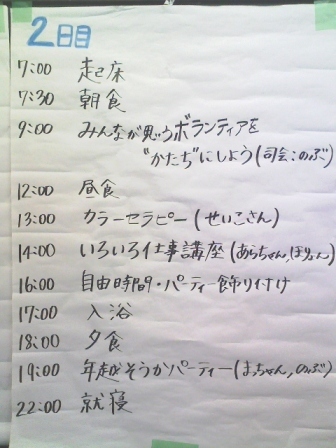 2日目
7:00 起床
7:30 朝食
9:00 みんなが思うボランティアを
"かたち"にしよう(司会:のぶ)
12:00 昼食
13:00 カラーセラピー(せいこさん)
14:00 いろいろ仕事講座(あらちゃん,ほりょん)
16:00 自由時間・パーティー飾り付け
17:00 入浴
18:00 夕食
19:00 年越そうかパーティー(はっちゃん,のぶ)
22:00 就寝